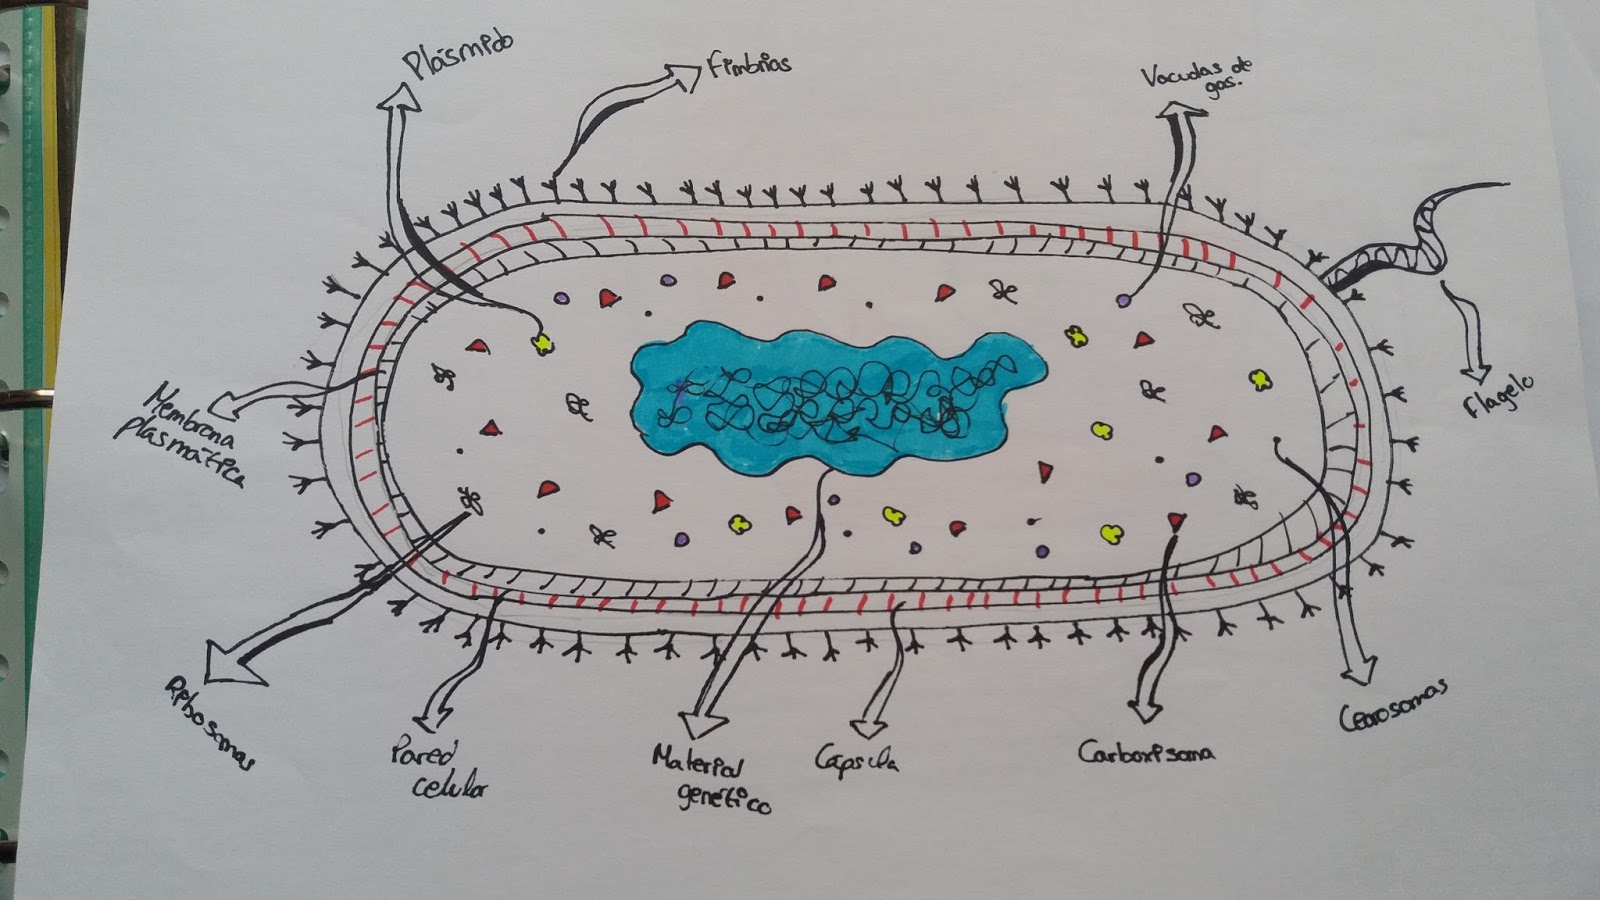 Plásmido
Fimbrias
Vacuolas de
gas.
Membrana
plasmática
Flagelo
Ribosomas
Pared
celular
Material
genético
Cápsula
Carboxisoma